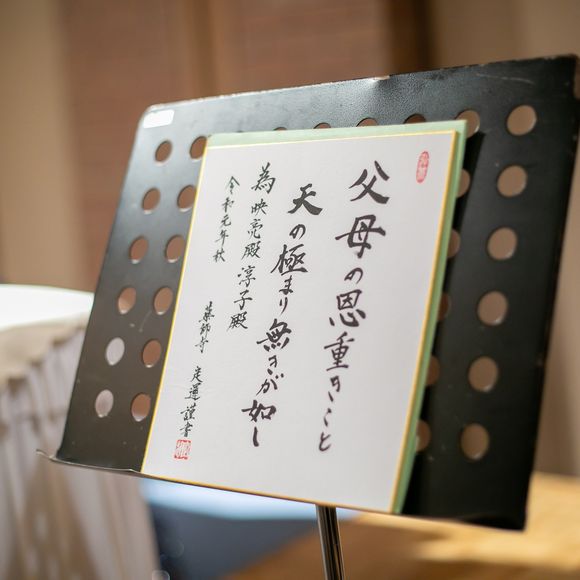 父母の恩重きこと
天の極まり無きが如し
為映亮殿淳子殿
令和元年秋
薬師寺 定道謹書